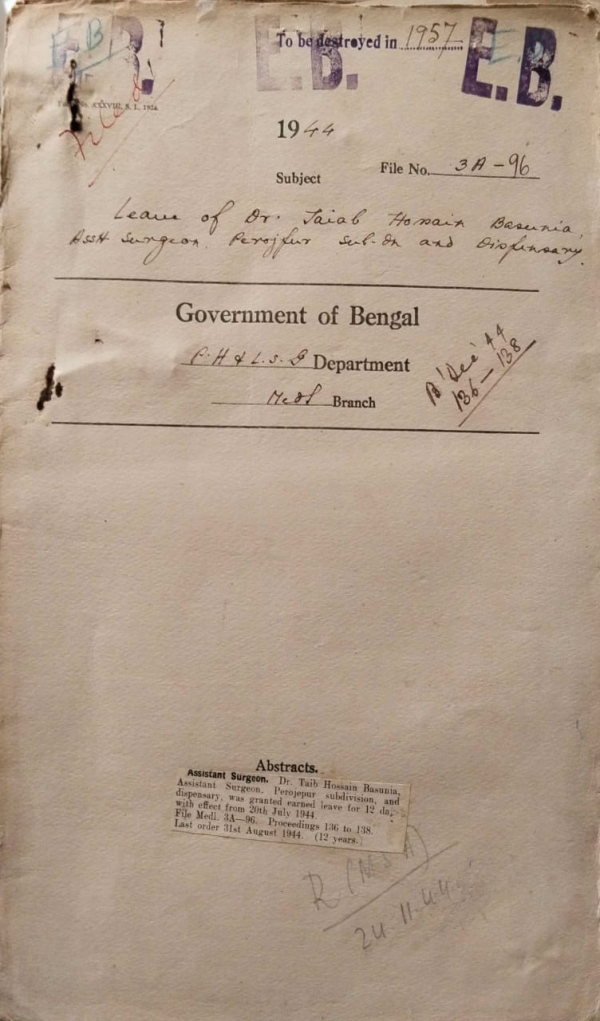 E.B. E.B. E.B.
E.B
To be destroyed in 1957
Filed
1944
File No. 3A-96
Subject
Leave of Dr. Taiab Hossain Basunia,
Asst Surgeon, Perojpur Sub-dn and Dispensary.
Government of Bengal
P.H & L.S.G Department
Medl Branch
B' Dec '44
136-138
Abstracts.
Assistant Surgeon. Dr. Taib Hossain Basunia,
Assistant Surgeon, Perojepur subdivision, and
dispensary, was granted earned leave for 12 da
with effect from 20th July 1944.
File Medl. 3A—96. Proceedings 136 to 138.
Last order 31st August 1944. (12 years.)
24.11.44